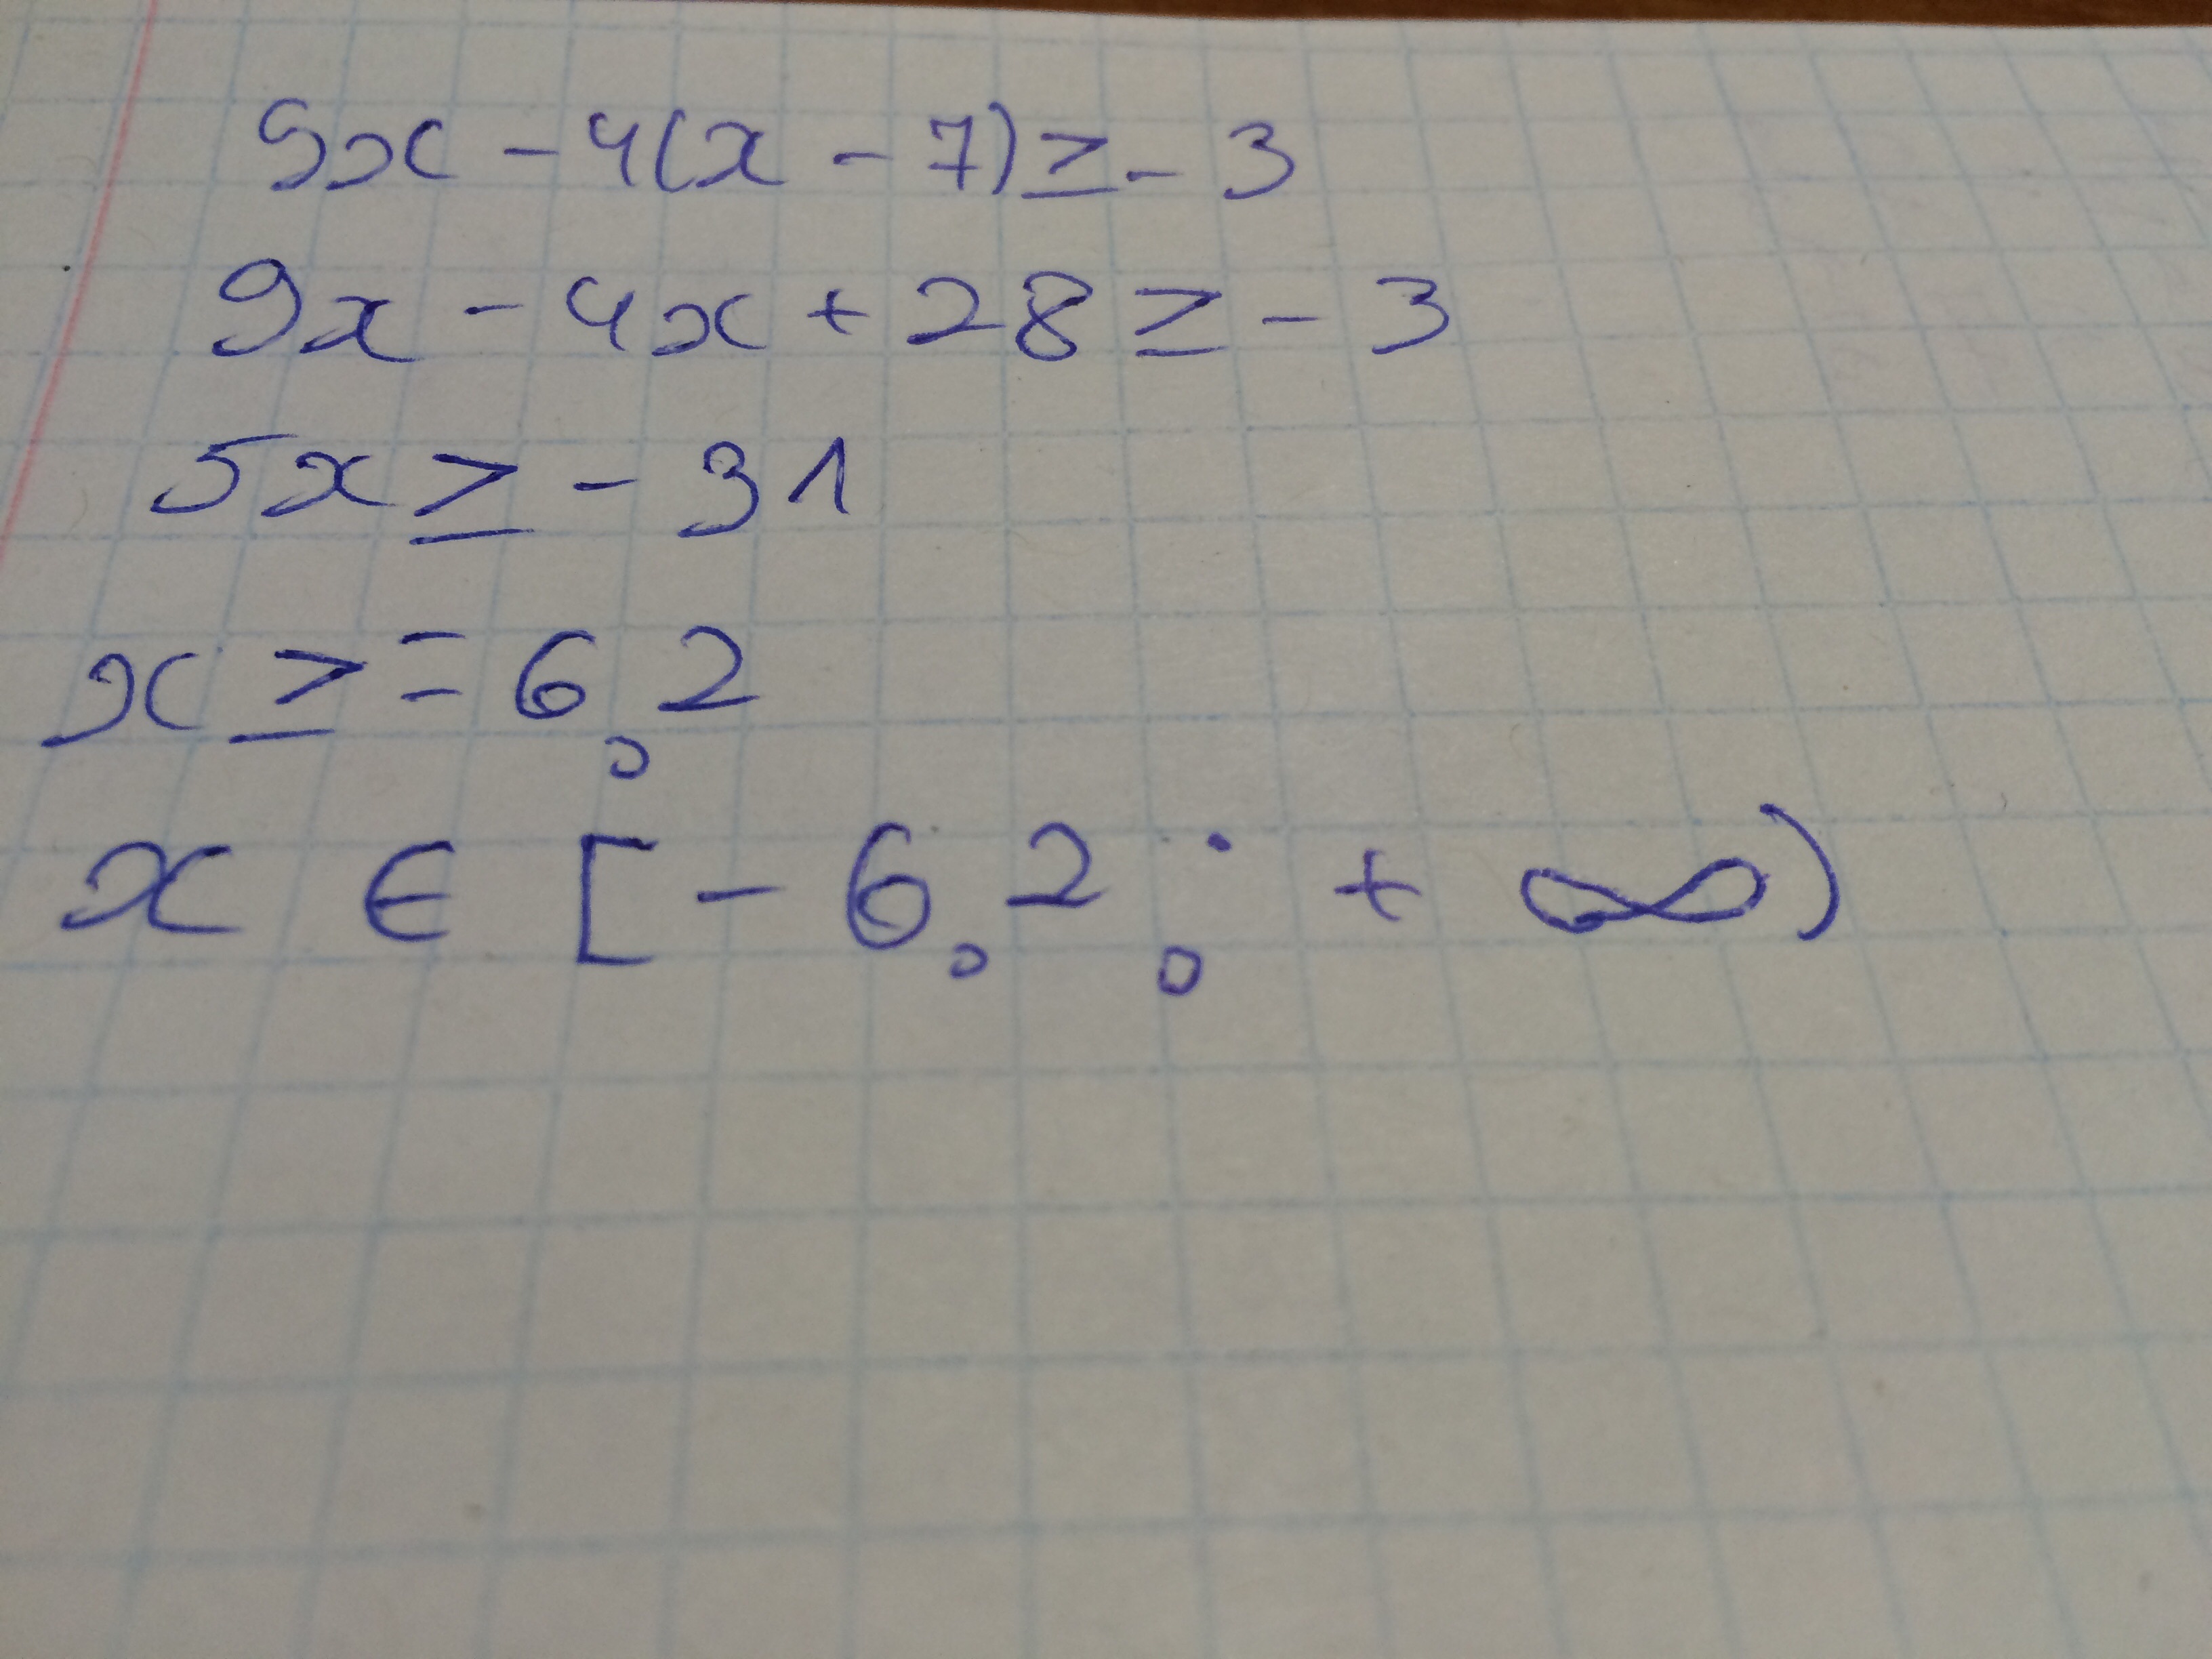 9x - 4(x - 7) ≥ - 3
9x - 4x + 28 ≥ - 3
5x ≥ - 31
x ≥ = 6,2
x ∈ [- 6,2; + ∞)